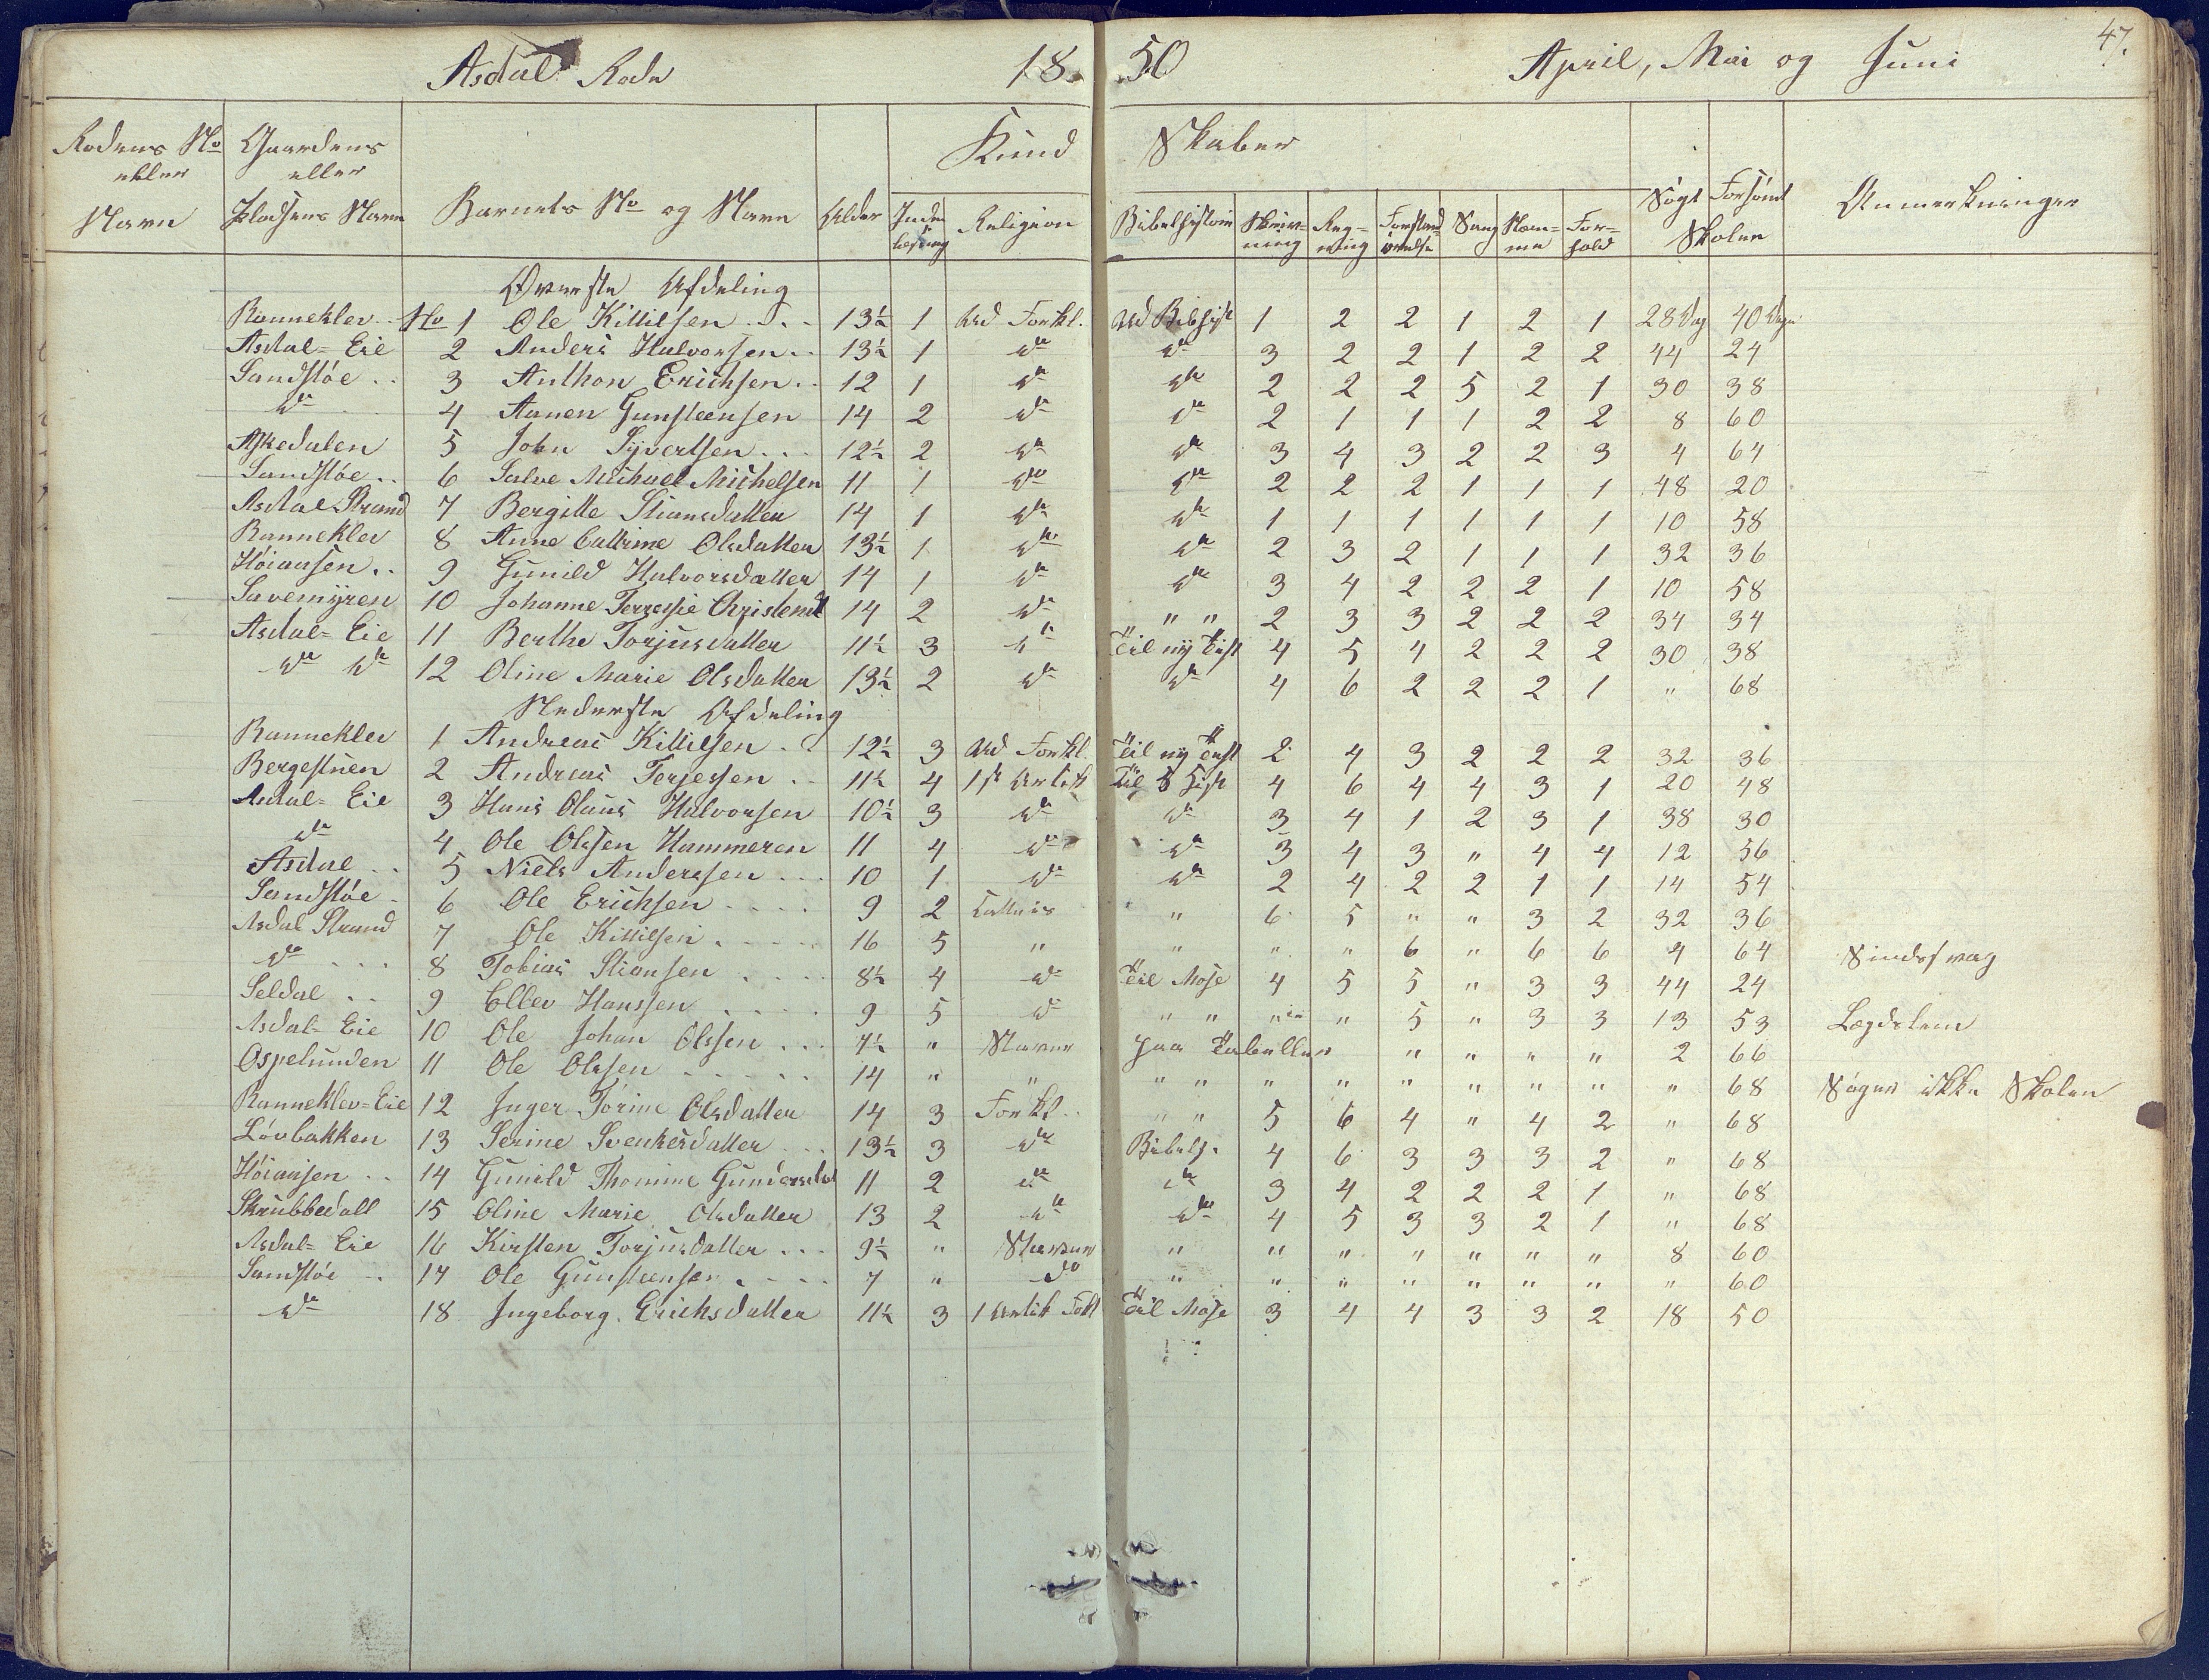 47.
Asdal Rode 1850 April, Mai og Juni
Rodens No eller Navn | Gaardens eller Pladsens Navn | Barnets No og Navn | Alder | Kundskaber | Søgt Forsømt Skolen | Anmerkninger
Inden læsning | Religion | Bibelhistorie | Skrivning | Regning | Forstandsøvelse | Sang | Nemme | Forhold
Øverste Afdeling
Ranneklev No 1 Ole Killilsen 13½ 1 Ud Forkl. Ud Bibhist 1 2 2 1 2 1 28 Dag 40 Dage
Asdal=Eie 2 Anders Halvorsen 13½ 1 do do 3 2 2 1 2 2 44 24
Sandstøe 3 Anthon Erichsen 12 1 do do 2 2 2 5 2 1 30 38
do 4 Aanen Gunsteensen 14 2 do do 2 1 1 1 2 2 8 60
Askedalen 5 John Syvertsen 12½ 2 do do 3 4 3 2 2 3 4 64
Sandstøe 6 Salve Michael Michelsen 11 1 do do 2 2 2 1 1 1 48 20
Asdal Strand 7 Bergitte Stiansdatter 14 1 do do 1 1 1 1 1 1 10 58
Ranneklev 8 Anne Cathrine Olsdatter 13½ 1 do do 2 3 2 1 1 1 32 36
Høiaasen 9 Gunild Halvorsdatter 14 1 do do 3 4 2 2 2 1 10 58
Savemyren 10 Johanne Terressie Christend 14 2 do " " 2 3 3 2 2 2 34 34
Asdal=Eie 11 Berthe Torjusdatter 11½ 3 do Til ny Tist 4 5 4 2 2 2 30 38
do do 12 Oline Marie Olsdatter 13½ 2 do do 4 6 2 2 2 1 " 68
Nederste Afdeling
Ranneklev 1 Andreas Killilsen 12½ 3 Ud Forkl. Til ny Test 2 4 3 2 2 2 32 36
Bergestuen 2 Andreas Terjessen 11½ 4 1st Artik Til 4 6 4 4 3 1 20 48
Asdal=Eie 3 Hans Olaus Halvorsen 10½ 3 do do 3 4 1 2 3 1 38 30
do 4 Ole Olssen Hammeren 11 4 do do 3 4 3 " 4 4 12 56
Asdal 5 Niels Anderssen 10 1 do do 2 4 2 2 1 1 14 54
Sandstøe 6 Ole Erichsen 9 2 " 6 5 " " 3 2 32 36
Asdal Strand 7 Ole Killilsen 16 5 " " " " 6 " 6 6 4 64 Sindssvag
do 8 Tobias Stiansen 8½ 4 do Til Mose 4 5 5 " 3 3 44 24
Seldal 9 Ellev Hanssen 9 5 do " " " " 5 " 3 3 13 53 Lægdslem
Asdal=Eie 10 Ole Johan Olssen 7½ " Staver paa Tabeller " " " " 2 66
Ospelunden 11 Ole Olssen 14 " " " " " " " " " " " 68 Søger ikke Skolen
Ranneklev=Eie 12 Inger Torine Olsdatter 14 3 Forkl. " " 5 6 4 " 4 2 " 68
Løvbakken 13 Serine Svenkesdatter 13½ 3 do Bibelh. 4 6 3 3 3 2 " 68
Høiaasen 14 Gunild Thomine Gundersdat 11 2 do do 3 4 2 2 2 1 " 68
Skrubbedall 15 Oline Marie Olsdatter 13 2 do do 4 5 3 3 2 1 " 68
Asdal=Eie 16 Kirsten Torjusdatter 9½ " Staver " " " " " " " 8 60
Sandstøe 17 Ole Gunsteensen 7 " do " " " " " " " " 60
do 18 Ingeborg Erichsdatter 11½ 3 1 Artik Fokl Til Mose 3 4 4 3 3 2 18 50